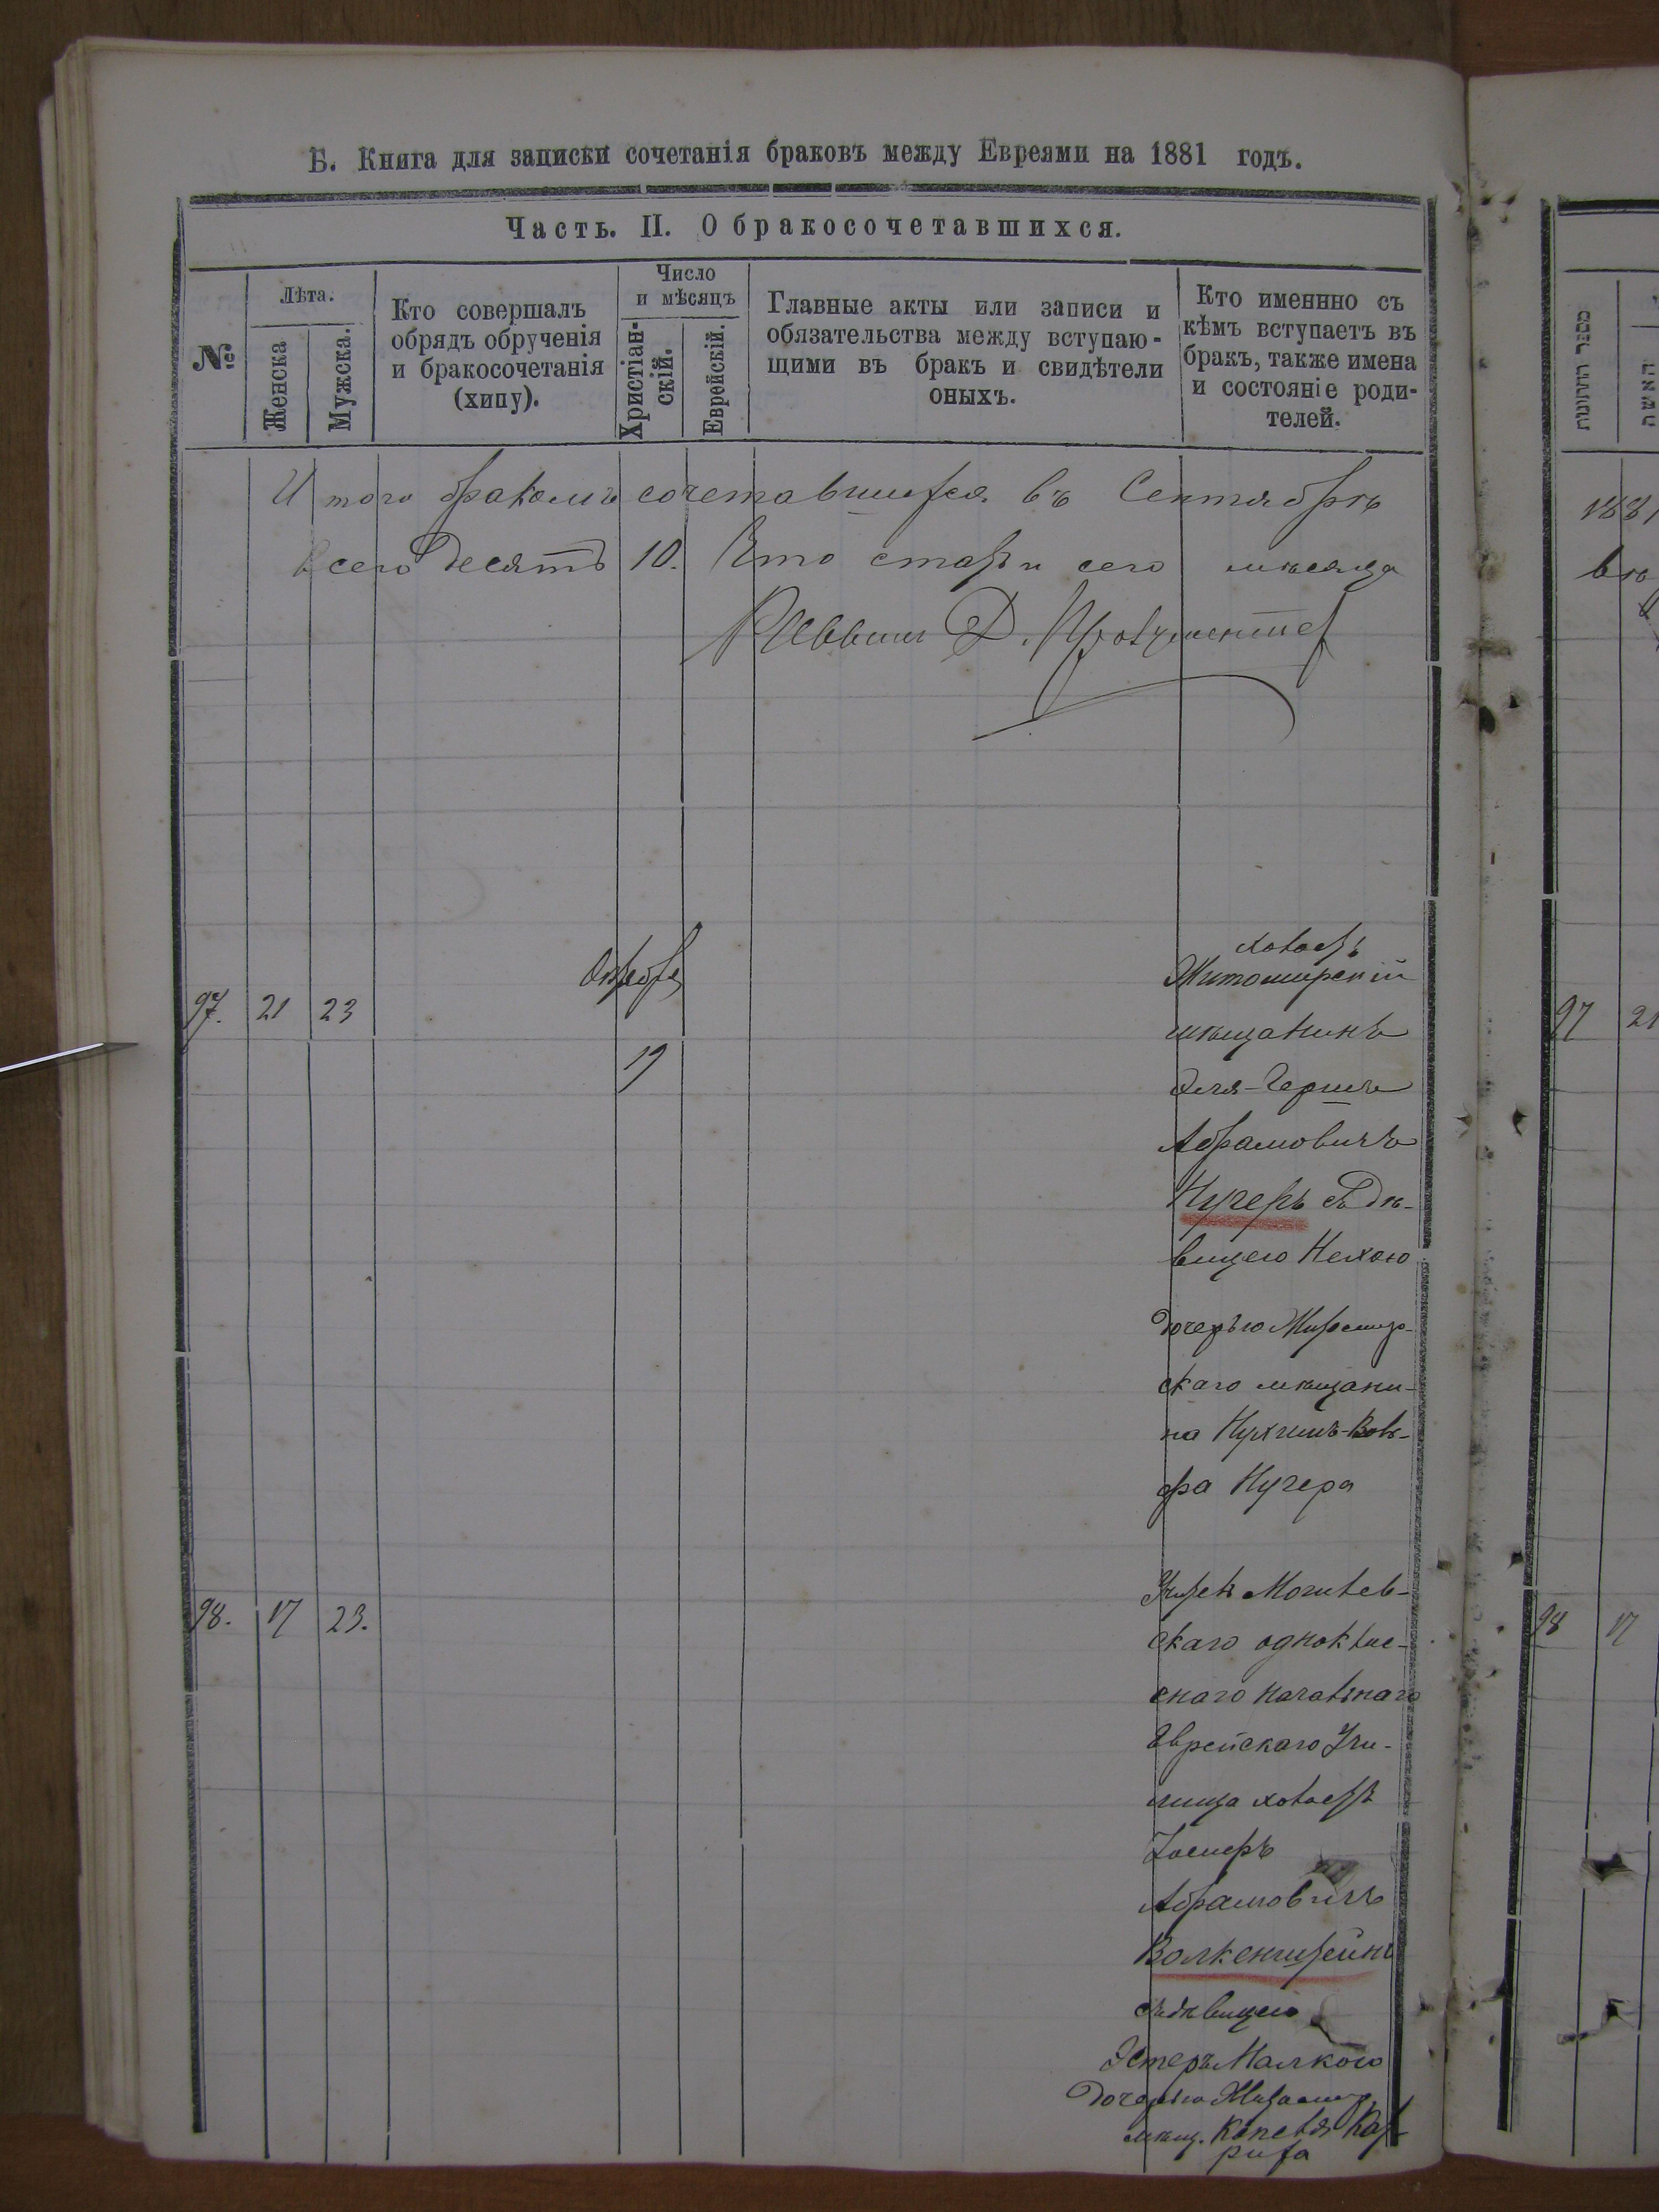 Б. Книга для записки сочетанія браковъ между Евреями на 1881 годъ.
Часть. II. О бракосочетавшихся.
№
Лѣта.
Женска
Мужска.
Кто совершалъ
обрядъ обрученія
и бракосочетанія
(хипу).
Число
и мѣсяцъ
Христіан-
скій.
Еврейскій.
Главные акты или записи и
обязательства между вступаю-
щими въ бракъ и свидѣтели
оныхъ.
Кто именнно съ
кѣмъ вступаетъ въ
бракъ, также имена
и состояніе роди-
телей.
Итого бракомъ сочетавшихся въ Сентябрѣ
всего Десять 10. Кто старъ сего мѣсяца
Раввинъ Д.
97. 21 23
Октября
19
холостъ
Житомирскій
мѣщанинъ
Эля-Гершъ
Абрамовичъ
Кучеръ съ дѣ-
вицею Нехою
дочерью Житомир-
скаго мѣщани-
на Нухимъ-Воль-
фа Кучера
98. 17 23.
Учитель Могилев-
скаго одноклас-
снаго начальнаго
Еврейскаго Учи-
лища холостъ
Іосифъ
Абрамовичъ
Волкенштейнъ
съ дѣвицею
Эстеръ Малкою
дочерью Житомир.
мѣщ.
מספר החתונות
האשה
1881
въ
97 21
98 17